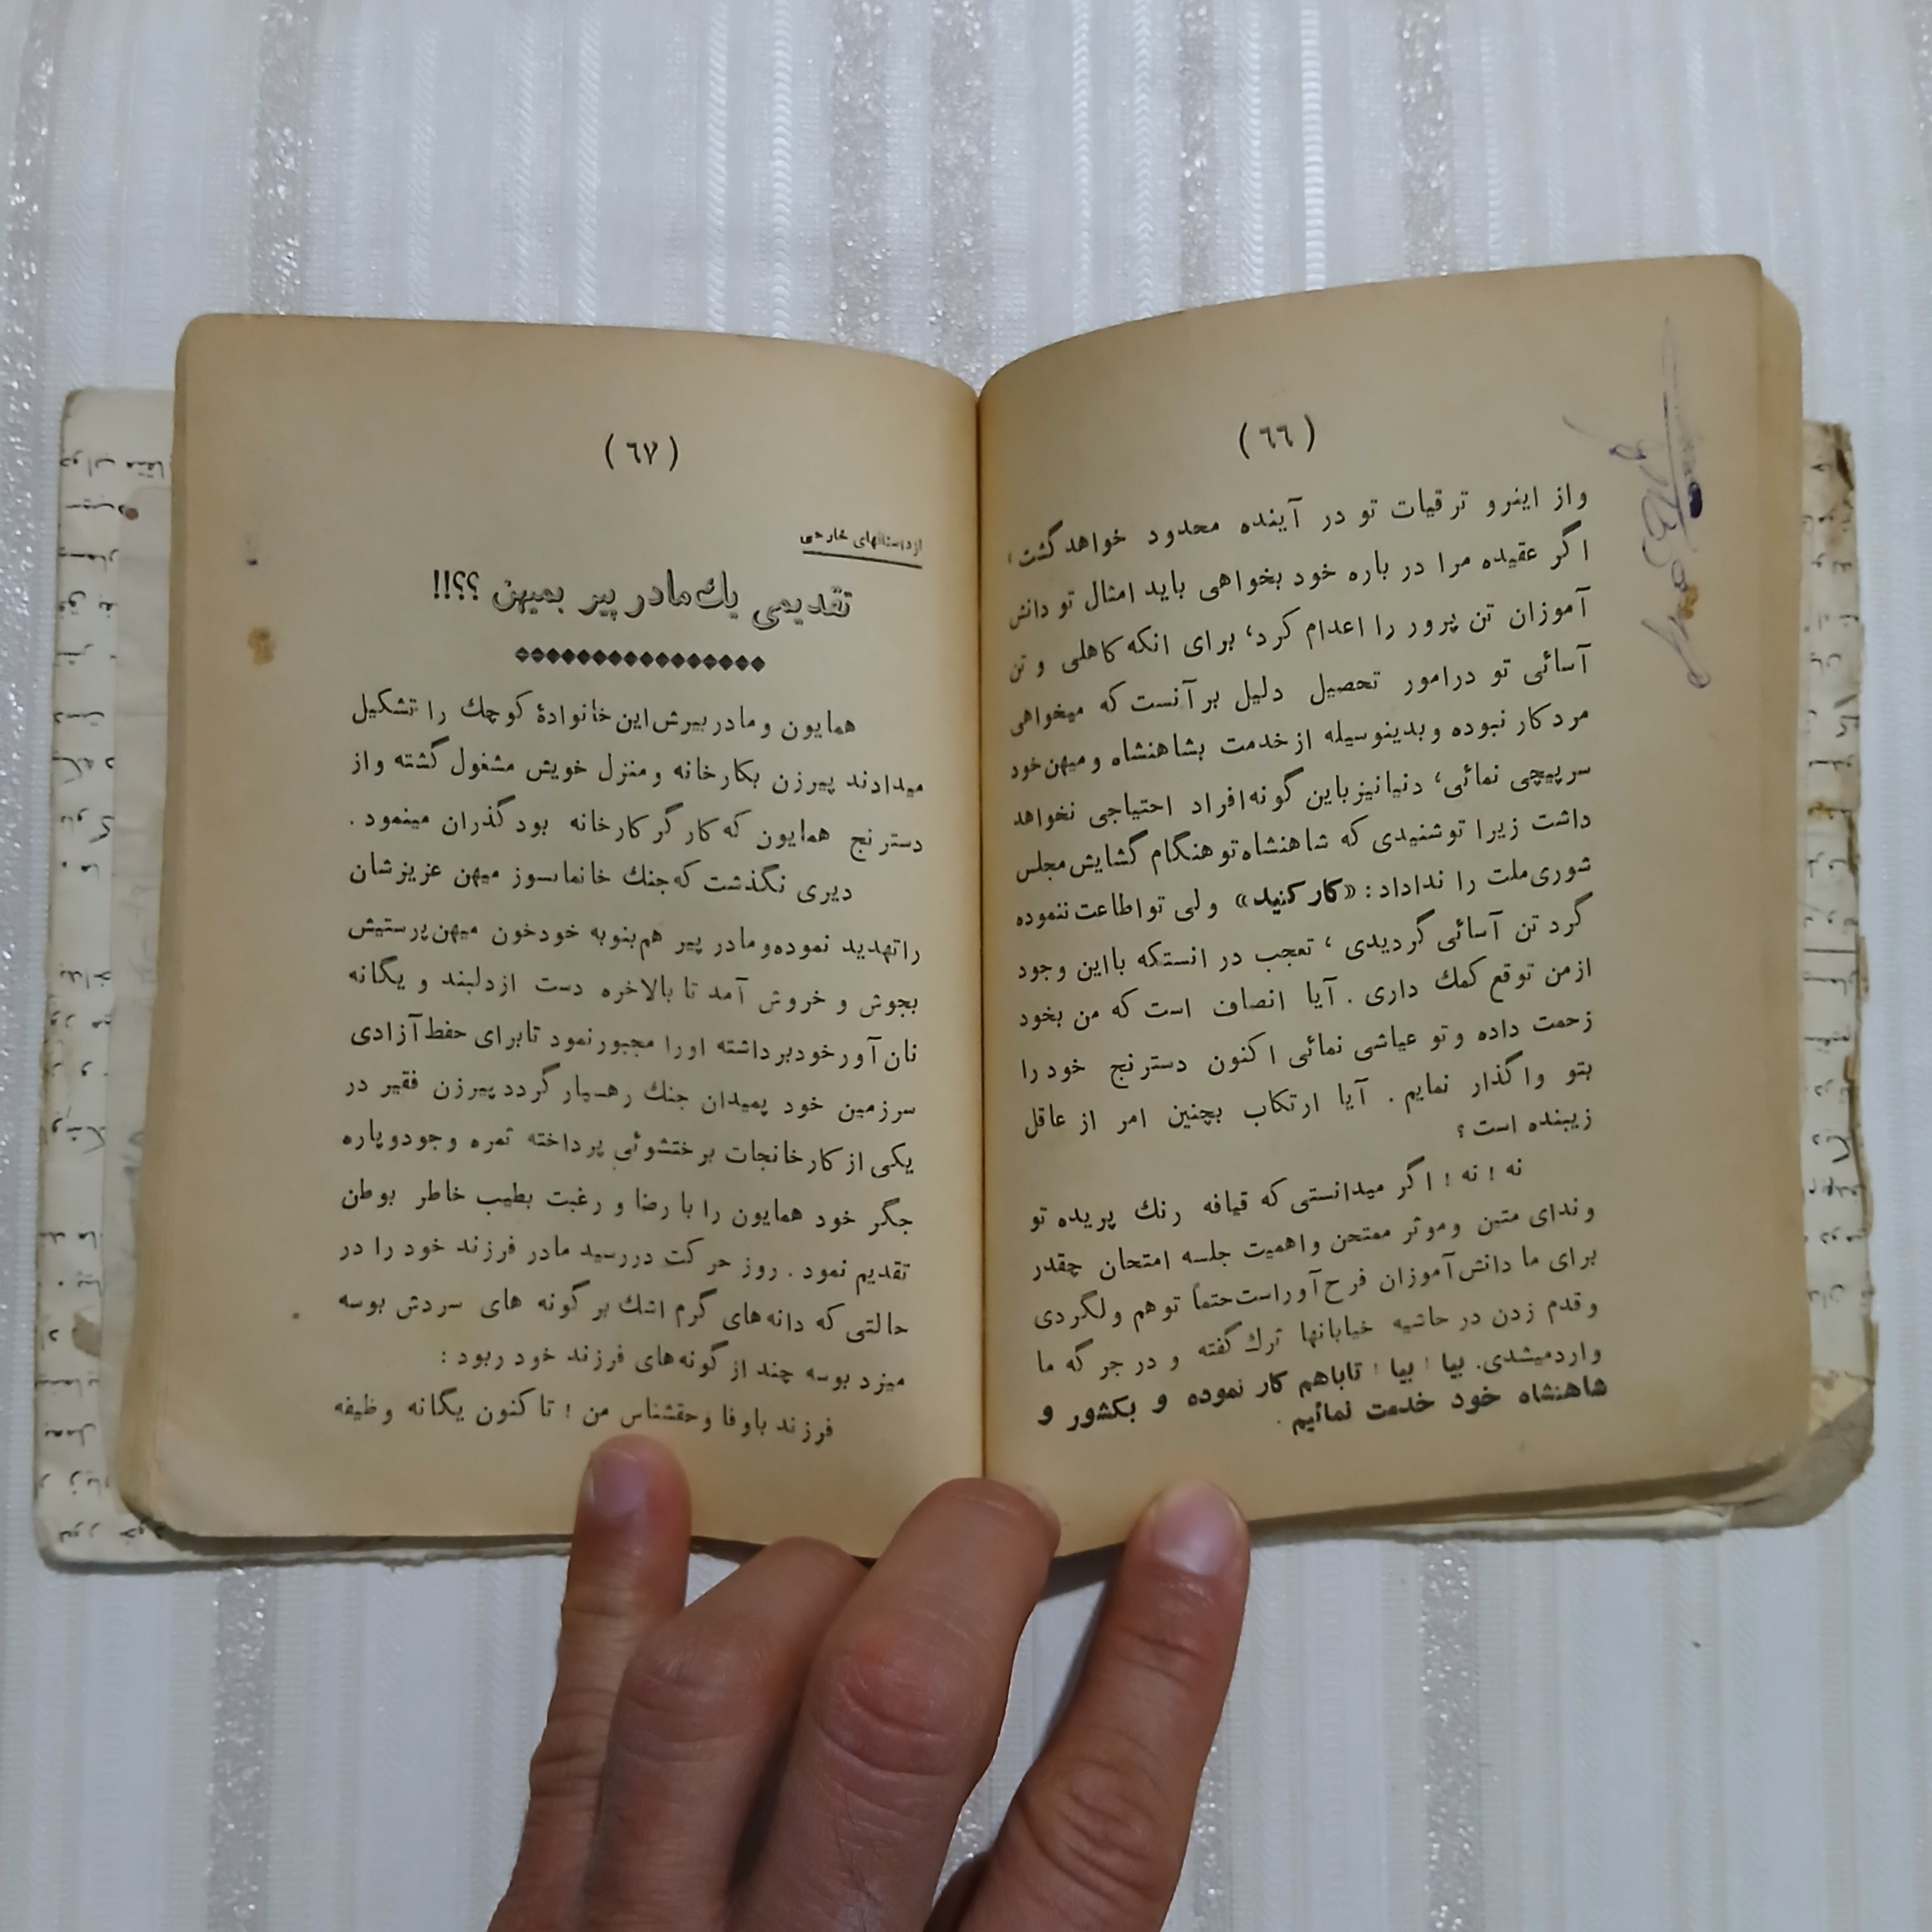 (٦٦)
واز اینرو ترقیات تو در آینده محدود خواهد گشت؛
اگر عقیده مرا در باره خود بخواهی باید امثال تو دانش
آموزان تن پرور را اعدام کرد، برای انکه کاهلی و تن
آسائی تو درامور تحصیل دلیل بر آنست که میخواهی
مرد کار نبوده و بدینوسیله از خدمت بشاهنشاه و میهن خود
سرپیچی نمائی، دنیا نیز باین گونه افراد احتیاجی نخواهد
داشت زیرا تو شنیدی که شاهنشاه تو هنگام گشایش مجلس
شوری ملت را نداداد: «کار کنید» ولی تو اطاعت ننموده
گرد تن آسائی گردیدی، تعجب در انستکه بااین وجود
ازمن توقع کمك داری. آیا انصاف است که من بخود
زحمت داده و تو عیاشی نمائی اکنون دسترنج خود را
بتو واگذار نمایم. آیا ارتکاب بچنین امر از عاقل
زیبنده است؟
نه! نه! اگر میدانستی که قیافه رنك پریده تو
وندای متین وموثر ممتحن واهمیت جلسه امتحان چقدر
برای ما دانش آموزان فرح آوراست حتماً تو هم ولگردی
و قدم زدن در حاشیه خیابانها ترك گفته و در جر گه ما
واردمیشدی. بیا! بیا! تاباهم کار نموده و بکشور و
شاهنشاه خود خدمت نمائیم.
(٦٧)
ازداستانهای خارجی
تقدیمی یك مادر پیر بمیهن ؟؟!!
همایون و مادر پیرش این خانوادهٔ کوچك را تشکیل
میدادند پیرزن بکارخانه و منزل خویش مشغول گشته واز
دسترنج همایون که کارگر کارخانه بود گذران مینمود.
دیری نگذشت که جنك خانمانسوز میهن عزیزشان
راتهدید نموده و مادر پیر هم بنوبه خودخون میهن پرستیش
بجوش و خروش آمد تا بالاخره دست ازدلبند و یگانه
نان آور خودبرداشته اورا مجبور نمود تابرای حفظ آزادی
سرزمین خود بمیدان جنك رهسپار گردد پیرزن فقیر در
یکی از کارخانجات برختشوئی پرداخته ثمره وجودوپاره
جگر خود همایون را با رضا و رغبت بطیب خاطر بوطن
تقدیم نمود. روز حرکت دررسید مادر فرزند خود را در
حالتی که دانه های گرم اشك بر گونه های سردش بوسه
میزد بوسه چند از گونه های فرزند خود ربود:
فرزند باوفا وحقشناس من! تاکنون یگانه وظیفه